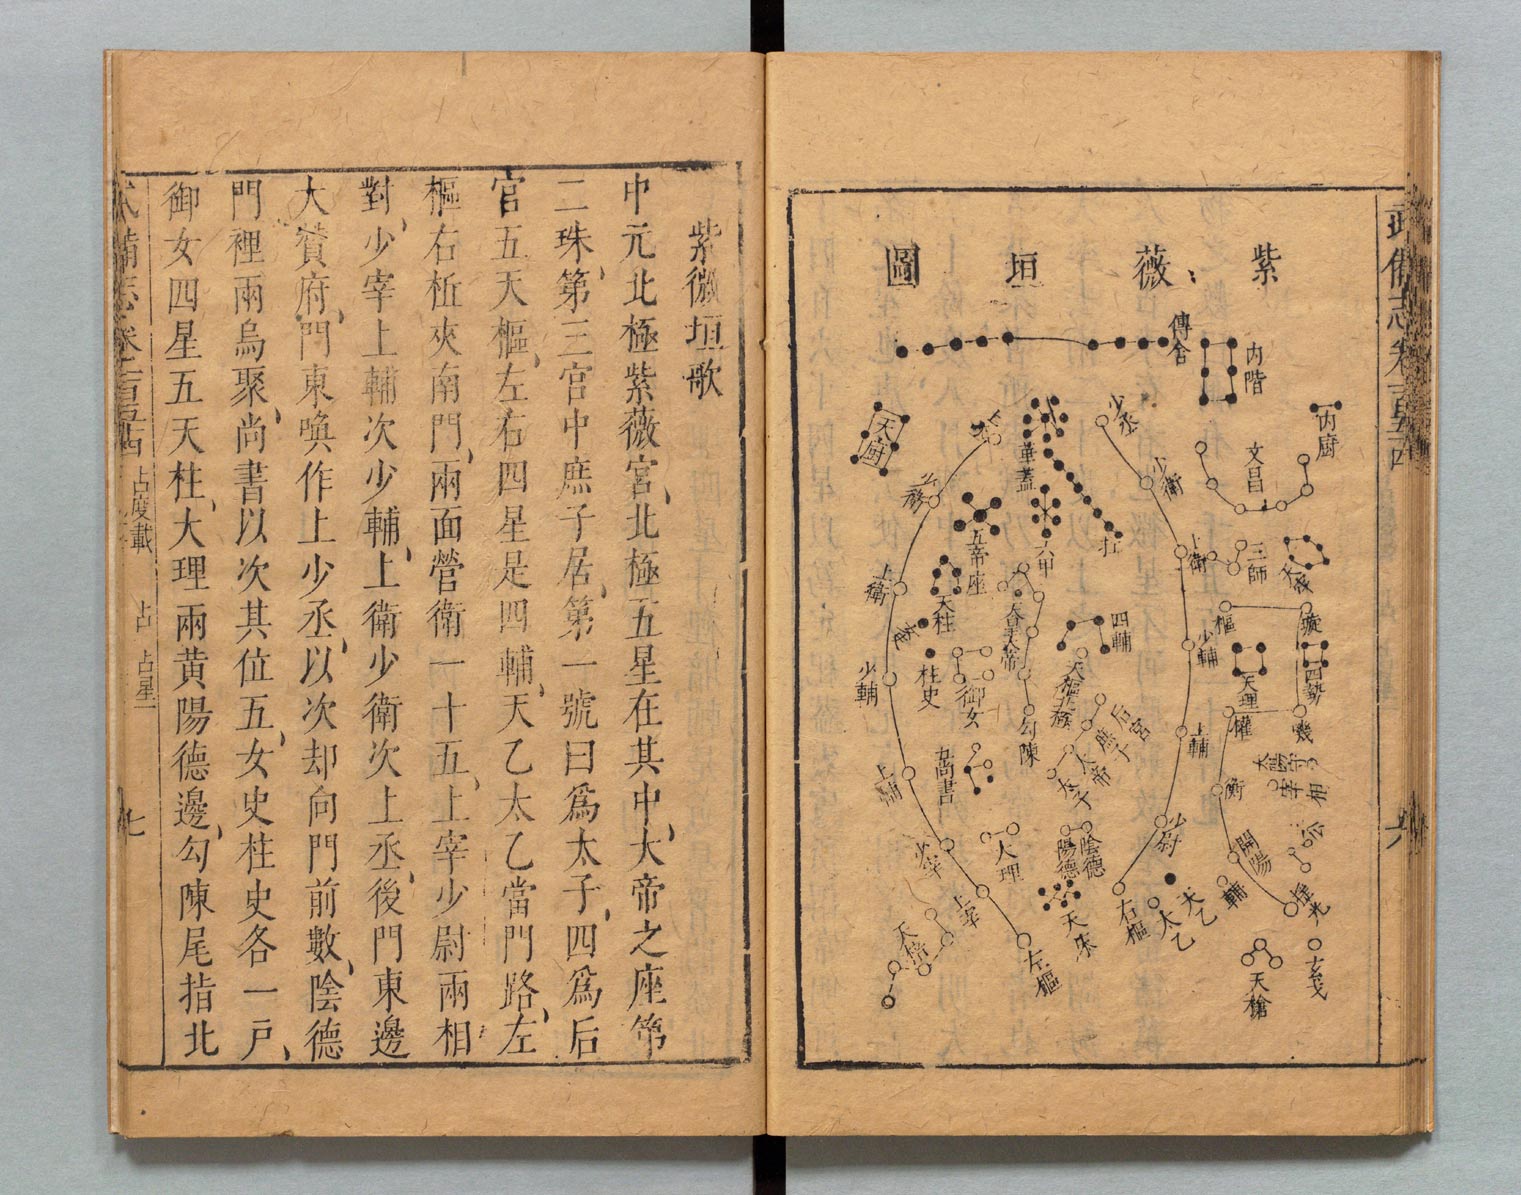 紫薇垣圖
傳舍
內階
天廚
華蓋
杠
少丞
少衛
文昌
內廚
五帝座
六甲
上衛
三師
上衛
天柱
天皇大帝
四輔
少輔
樞
璇
天理
四勢
少輔
柱史
御女
勾陳
后宮
庶子
帝
太子
上輔
權
璣
上輔
尚書
衡
少宰
大理
陽德
陰德
少尉
開陽
上宰
天床
右樞
太乙
天乙
輔
搖光
天棓
左樞
天槍
玄戈
武備志卷一百五十四
六
紫微垣歌
中元北極紫薇宮、北極五星在其中、大帝之座第
二珠、第三宮中庶子居、第一號曰爲太子、四爲后
宮五天樞、左右四星是四輔、天乙太乙當門路、左
樞右樞夾南門、兩面營衛一十五、上宰少尉兩相
對、少宰上輔次少輔、上衛少衛次上丞、後門東邊
大贊府、門東喚作上少丞、以次却向門前數、陰德
門裡兩烏聚、尚書以次其位五、女史柱史各一戶、
御女四星五天柱、大理兩黃陽德邊、勾陳尾指北
武備志卷一百五十四 占度載 占 占星一 七